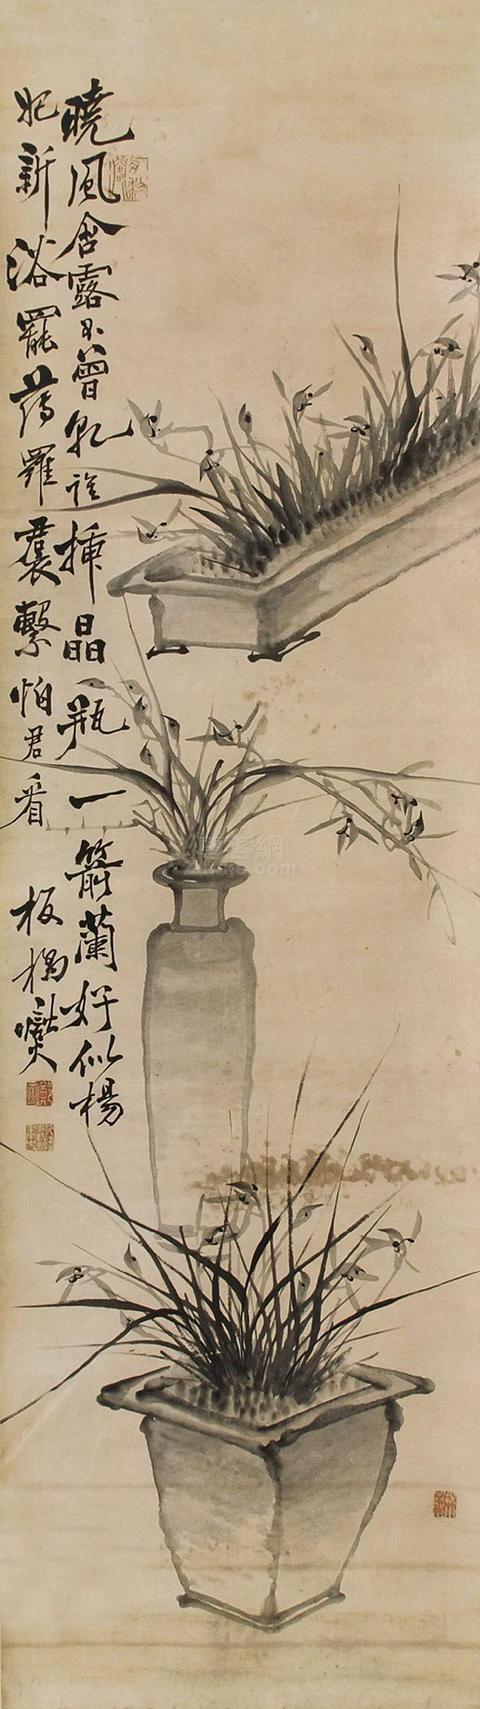 曉風含露不曾乾誰插晶瓶一箭蘭好似楊
妃新浴罷薄羅裠繫怕君看
板橋燮